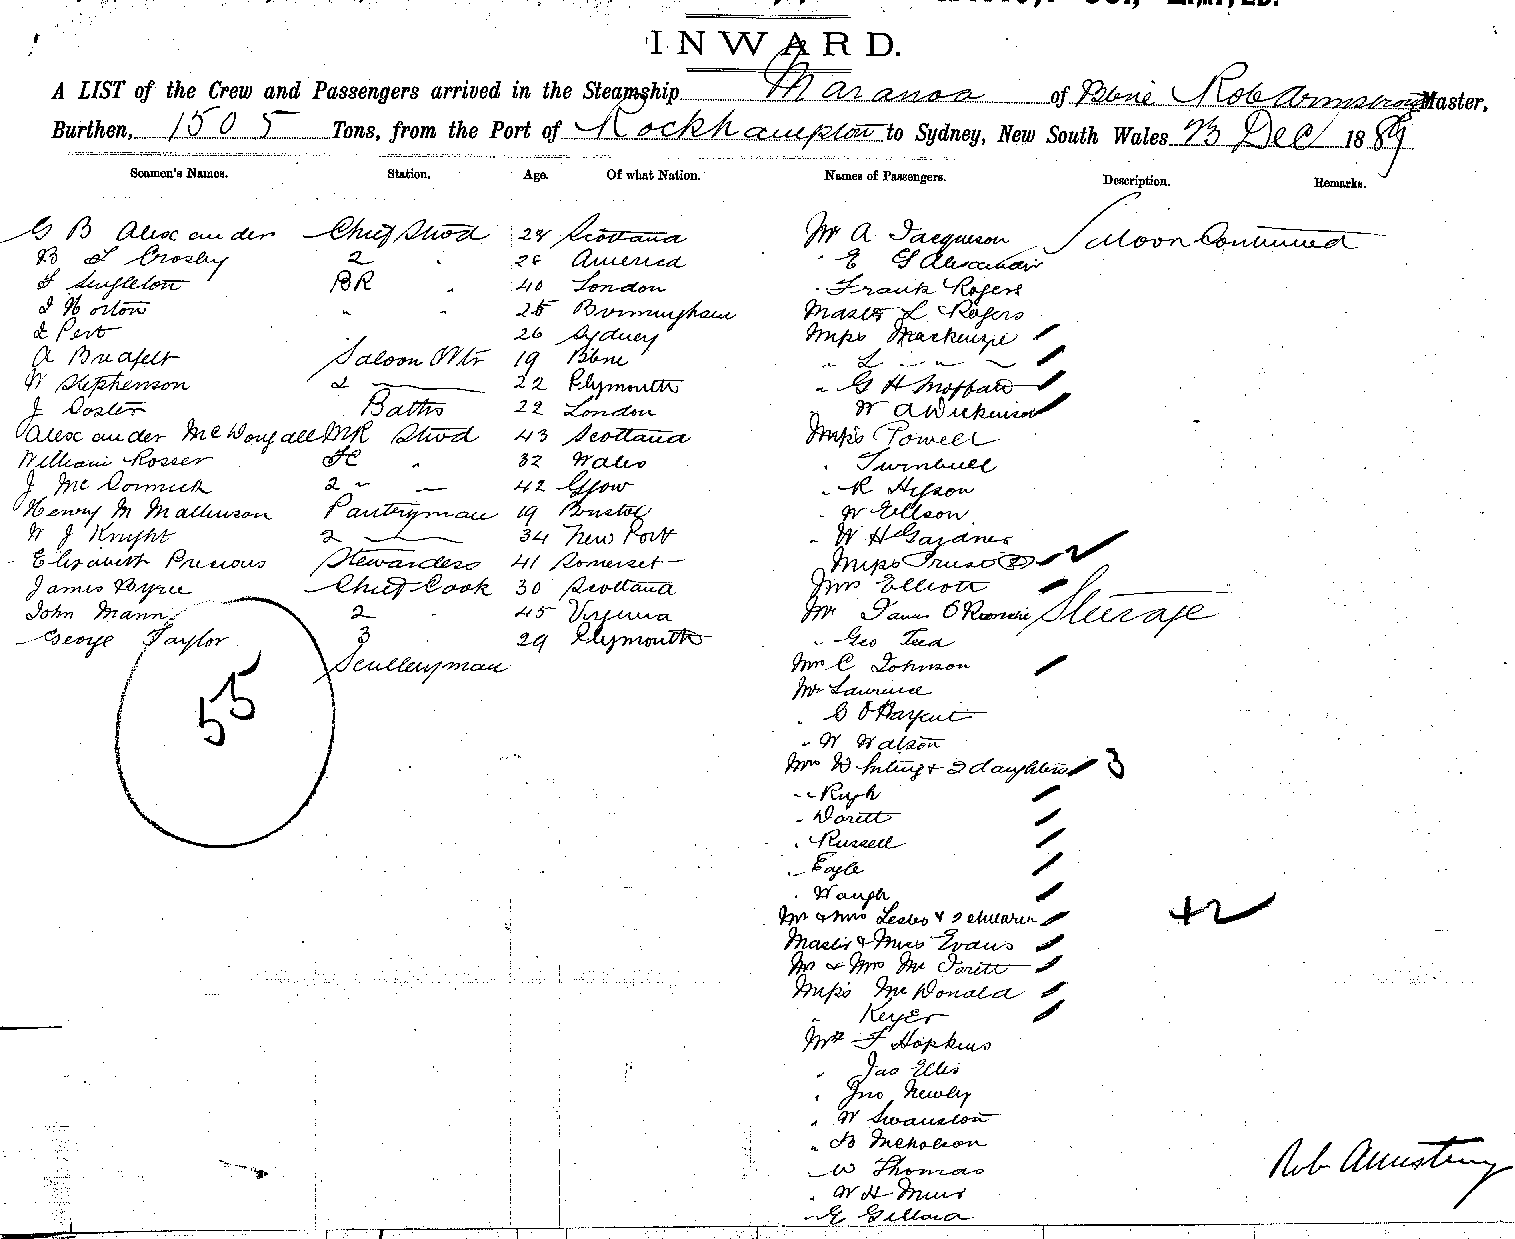 LIMITED.
INWARD.
A LIST of the Crew and Passengers arrived in the Steamship Maranoa of Bbne Rob Armstrong Master,
Burthen, 1505 Tons, from the Port of Rockhampton to Sydney, New South Wales 23 Dec 1889
Seamen's Names. Station. Age. Of what Nation. Names of Passengers. Description. Remarks.
G B Alexander Chief Stwd 28 Scotland
Crosby 2 " 26 America
Singleton BR " 40 London
Horton " " 25 Birmingham
Pert 26 Sydney
A Saloon Wtr 19 Bbne
W Stephenson 2 22 Plymouth
J Baths 22 London
Alexander McDougall Stwd 43 Scotland
William Rosser " 32 Wales
J McCormick 2 " 42 Glgow
Henry M Pantryman 19 Bristol
W J Knight 2 34 New Port
Elizabeth Precious Stewardess 41 Somerset
James Chief Cook 30 Scotland
John Mann 2 " 45 Virginia
George Taylor 3 29 Plymouth
Sculleryman
55
Mr A Saloon Continued
" E G Alexander
" Frank Rogers
Master L Rogers
Miss Mackenzie
" L " "
" G H Moffatt
" W A Dickinson
Miss Powell
" Turnbull
" R
" W Ellson
" W H Gardner
Miss
Mrs Elliott
Mr Steerage
" Geo
Mrs C Johnson
Mr Laurence
"
" W Watson
Mrs Whiting & 2 daughters 3
" Pugh
"
" Russell
" Eagle
" Waugh
Mr & Mrs Leslie & 2 children 42
Master & Miss Evans
Mr & Mrs
Miss McDonald
" Keyer
Mr F Hopkins
" Jas Ellis
" Jno Newby
" W Swanston
" B Nicholson
" W Thomas
" W H Muir
" G Gillard
Rob Armstrong